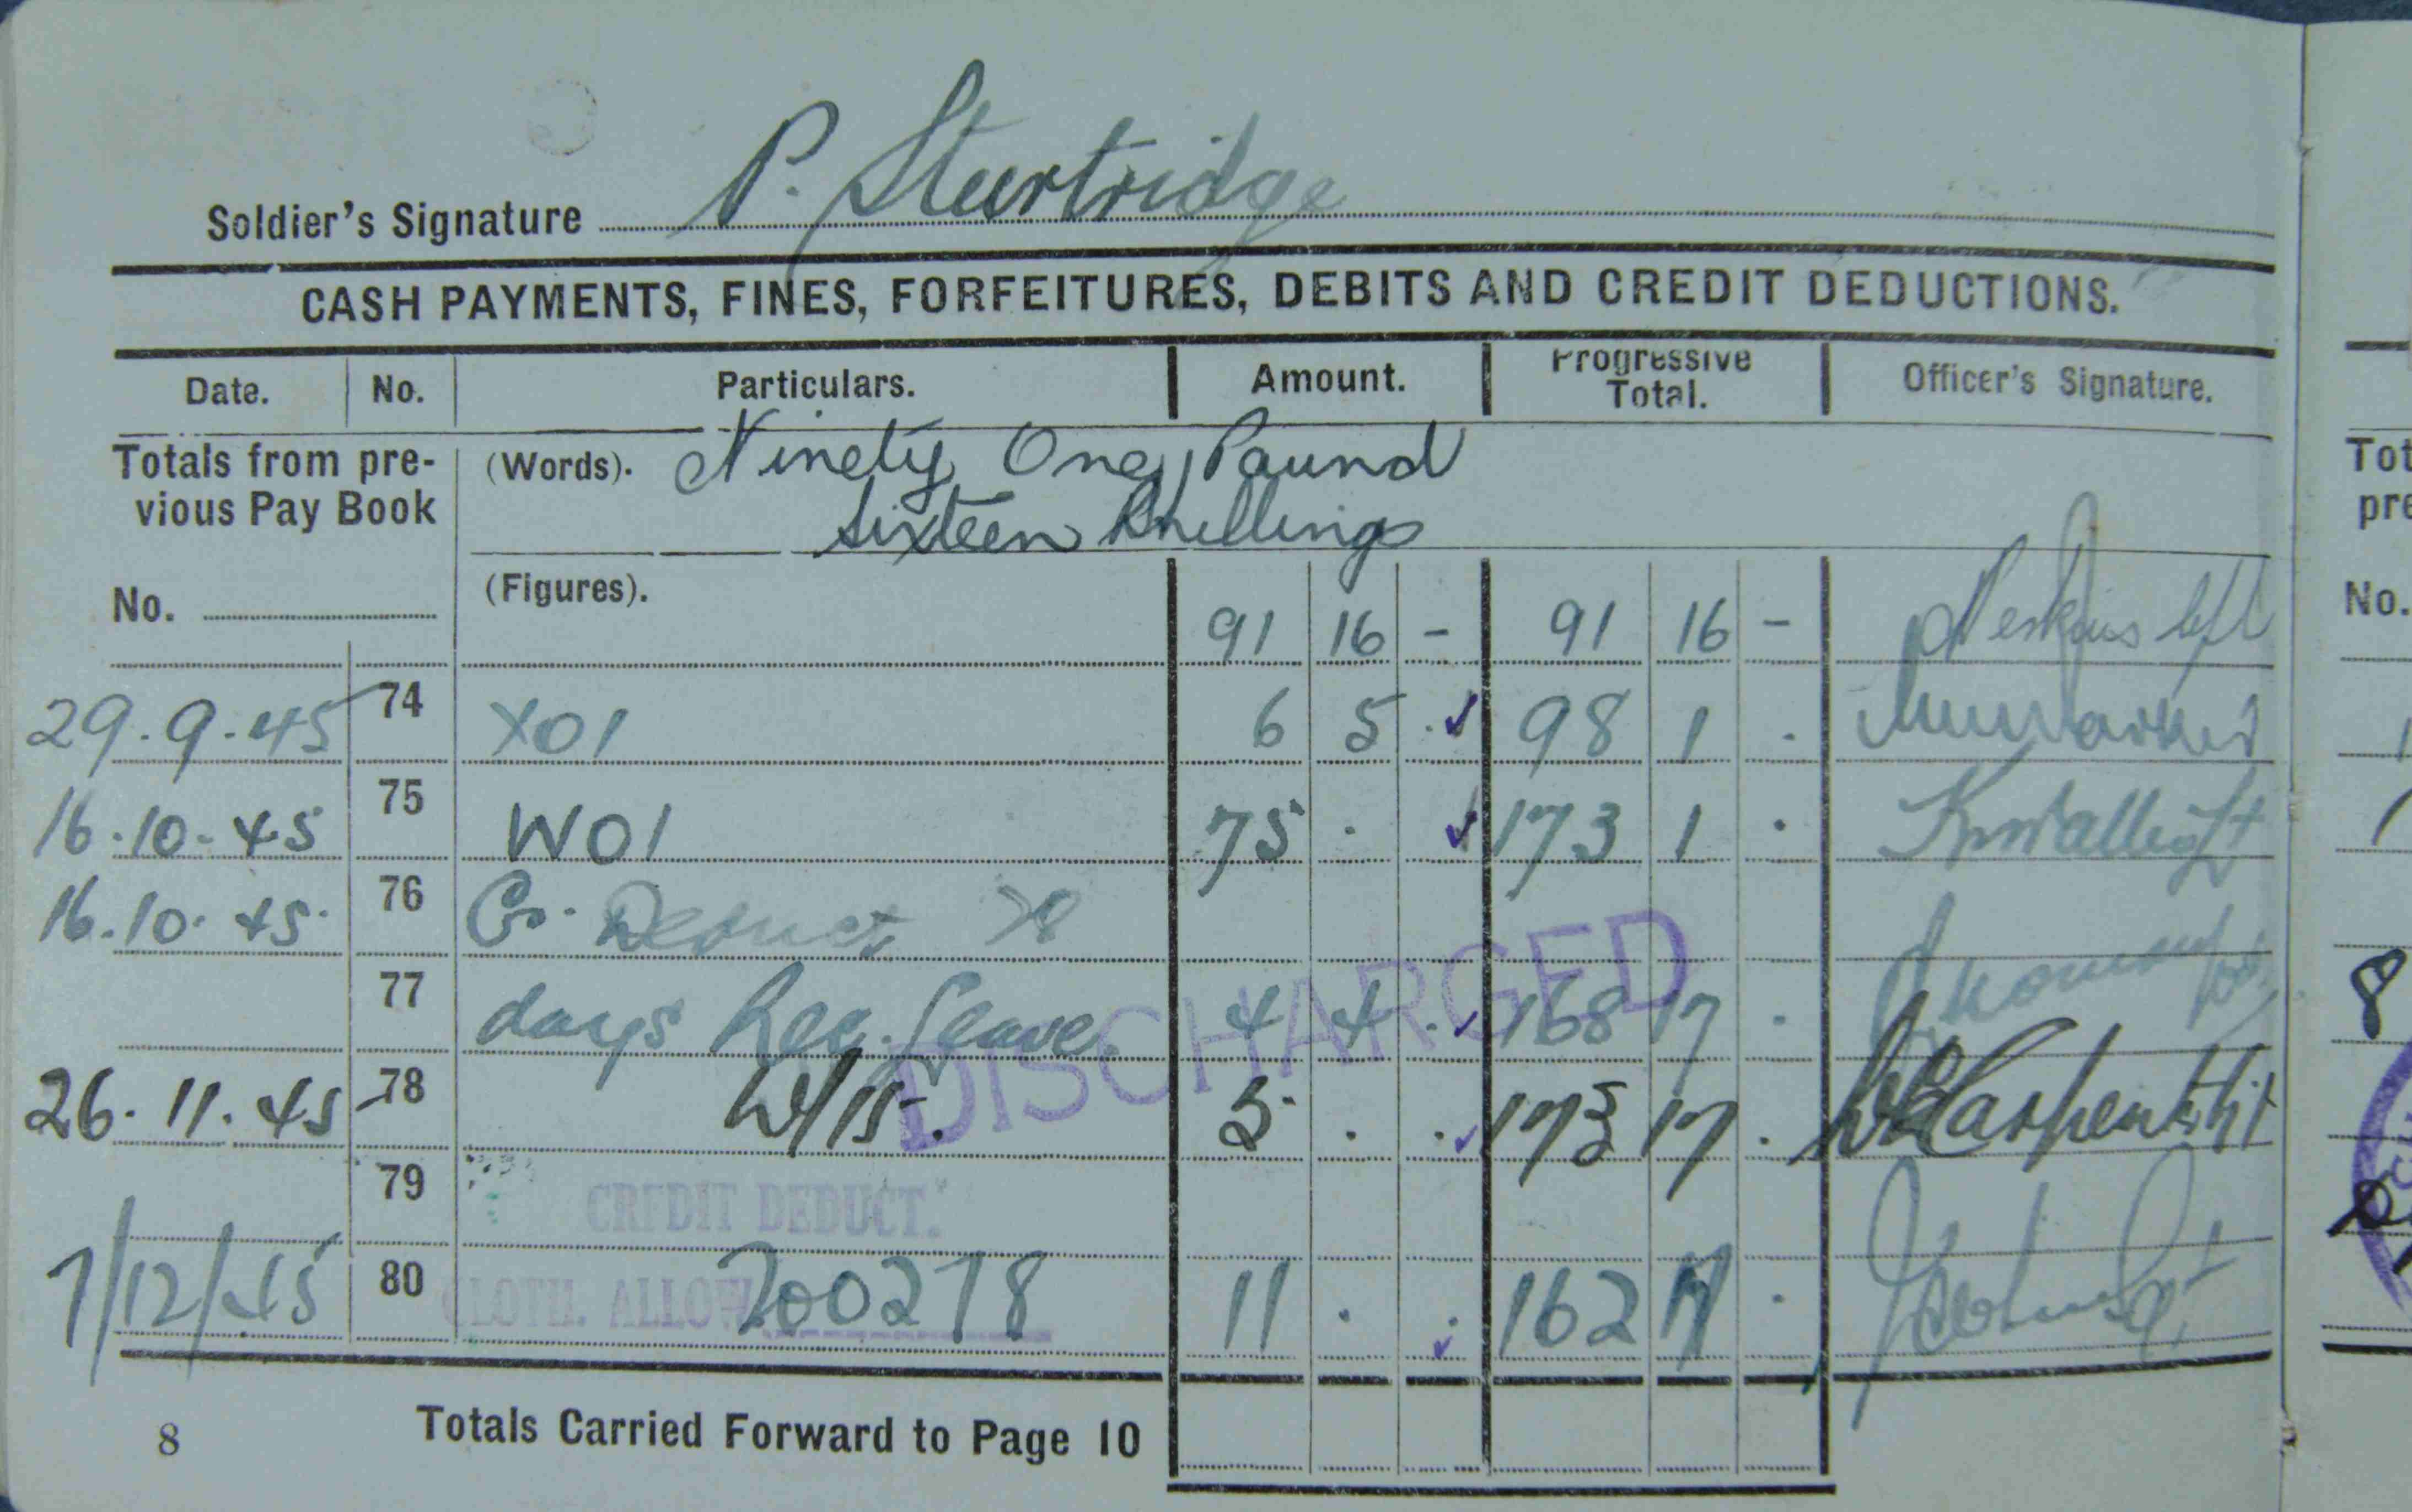 Soldier's Signature P. Sturtridge
CASH PAYMENTS, FINES, FORFEITURES, DEBITS AND CREDIT DEDUCTIONS.
Date. No. Particulars. Amount. Progressive Total. Officer's Signature.
Totals from pre- (Words). Ninety One Pound
vious Pay Book Sixteen Shillings
No. (Figures). 91 16 - 91 16 -
29.9.45 74 X01 6 5 . 98 1 .
16.10.45 75 W01 75 . 173 1 .
16.10.45. 76 Cr. Deduct
77 days Rec. Leave. 4 4 . 168 17 .
DISCHARGED
26.11.45 78 W/15. 5 . . 173 17 .
79 CREDIT DEDUCT.
7/12/45 80 CLOTH. ALLOW. 200278 11 . . 162 17 .
8 Totals Carried Forward to Page 10
Tot
pre
No.
8